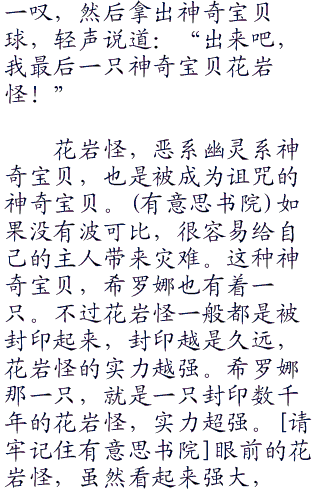 一叹，然后拿出神奇宝贝
球，轻声说道：“出来吧，
我最后一只神奇宝贝花岩
怪！”
花岩怪，恶系幽灵系神
奇宝贝，也是被成为诅咒的
神奇宝贝。(有意思书院)如
果没有波可比，很容易给自
己的主人带来灾难。这种神
奇宝贝，希罗娜也有着一
只。不过花岩怪一般都是被
封印起来，封印越是久远，
花岩怪的实力越强。希罗娜
那一只，就是一只封印数千
年的花岩怪，实力超强。[请
牢记住有意思书院]眼前的花
岩怪，虽然看起来强大，